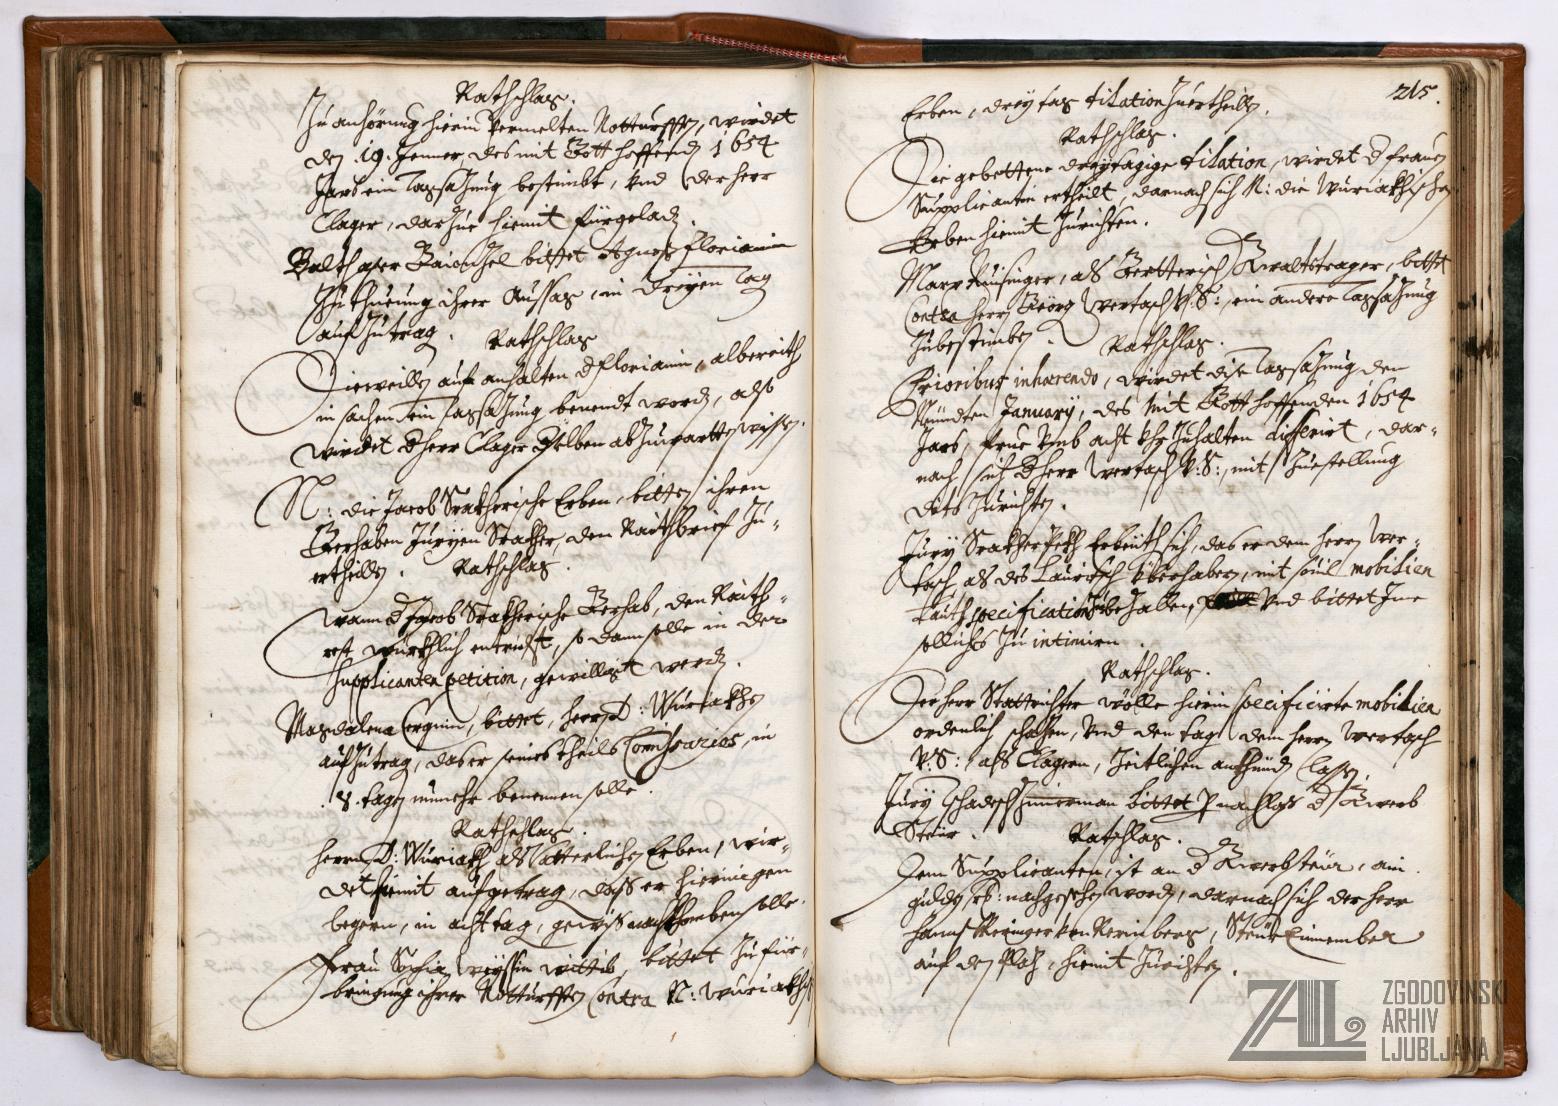 Rathschlag.
Zu anhörung hierin vermelten Notturfften, wirdet
den .19. Jenner, des mit Gott hoffenden 1654
Jars ein Tagsazung bestimbt, vnd der herr
Clager, darzue hiemit fürgeladen.
Balthasar bittet Agnes Florianin
Zu thueung ihrer Aussag, in dreyen Tag
aufzutragen.
Rathschlag
Dieweillen auf anhalten d Florianin, albereith
in sachen ein Tagsazung benendt worden, also
wirdet d herr Clager derselben abzuwartten wissen.
N: die Jacob Srakherische Erben, bitten ihren
Gerhaben Juryen Srakher, den Raithbrief zu-
ertheillen.
Rathschlag.
Wann d Jacob Srakherische Gerhab, den Raith-
rest würkhlich entricht, so dann solle in der
Supplicanten petition, gewilligt werden.
Magdalena Cerguin, bittet, herrn D: Wuriakhen
aufzutragen, das er seines theils Comissarios, in
.8. tagen nunmehr benennen solle.
Rathschlag.
herrn D: Wuriakh als Vatterlichen Erben, wir-
det hiemit aufgetragen, dass er hierinigen
begern, in acht tagen, gewiss nachkhomben solle.
Frau Sophia Weyssin wittib, bittet zu für-
bringung ihrer Notturfften Contra N: Wuriakhische
215.
Erben, drey tag dilation zuertheillen.
Rathschlag.
Die gebettene dreytagige dilation, wirdet d frauen
Supplicantin ertheilt, darnach sich N: die Wuriakhischen
Erben hiemit zurichten.
Marx als Gwaltstrager, bittet
Contra herrn Georg Wertasch V:S:, ein andere Tagsazung
zubestimben.
Rathschlag.
Prioribus inhaerendo, wirdet dise Tagsazung den
Neundten January, des mit Gott hoffenden 1654
Jars, frue vmb acht vhr zuhalten differirt, dar-
nach sich d herr Wertasch V:S:, mit zuestellung
dits zurichten.
Jury Srakher Erbeuth sich, das er dem herrn Wer-
tasch als des Lauritsch Yberhabern, mit souil mobilien
Lauth specification zubezallen, vnd bittet Ime
sollichs zu intimirn.
Rathschlag.
Der herr Stattrichter wölle hierin specificirte mobilien
ordenlich schäzen, vnd den tag dem herrn Wertasch
V:S: als Clagern, zeitlichen ankhünden lassen.
Jury Zimerman bittet P nachlass d Gwerb
Steur.
Rathschlag.
Dem Supplicanten, ist an d Gwerbsteur, ain
gulden, nachgesehen worden, darnach sich der herr
Hanns von Steur Einnember
auf dem Plaz, hiemit zurichten.
ZAL
ZGODOVINSKI
ARHIV
LJUBLJANA